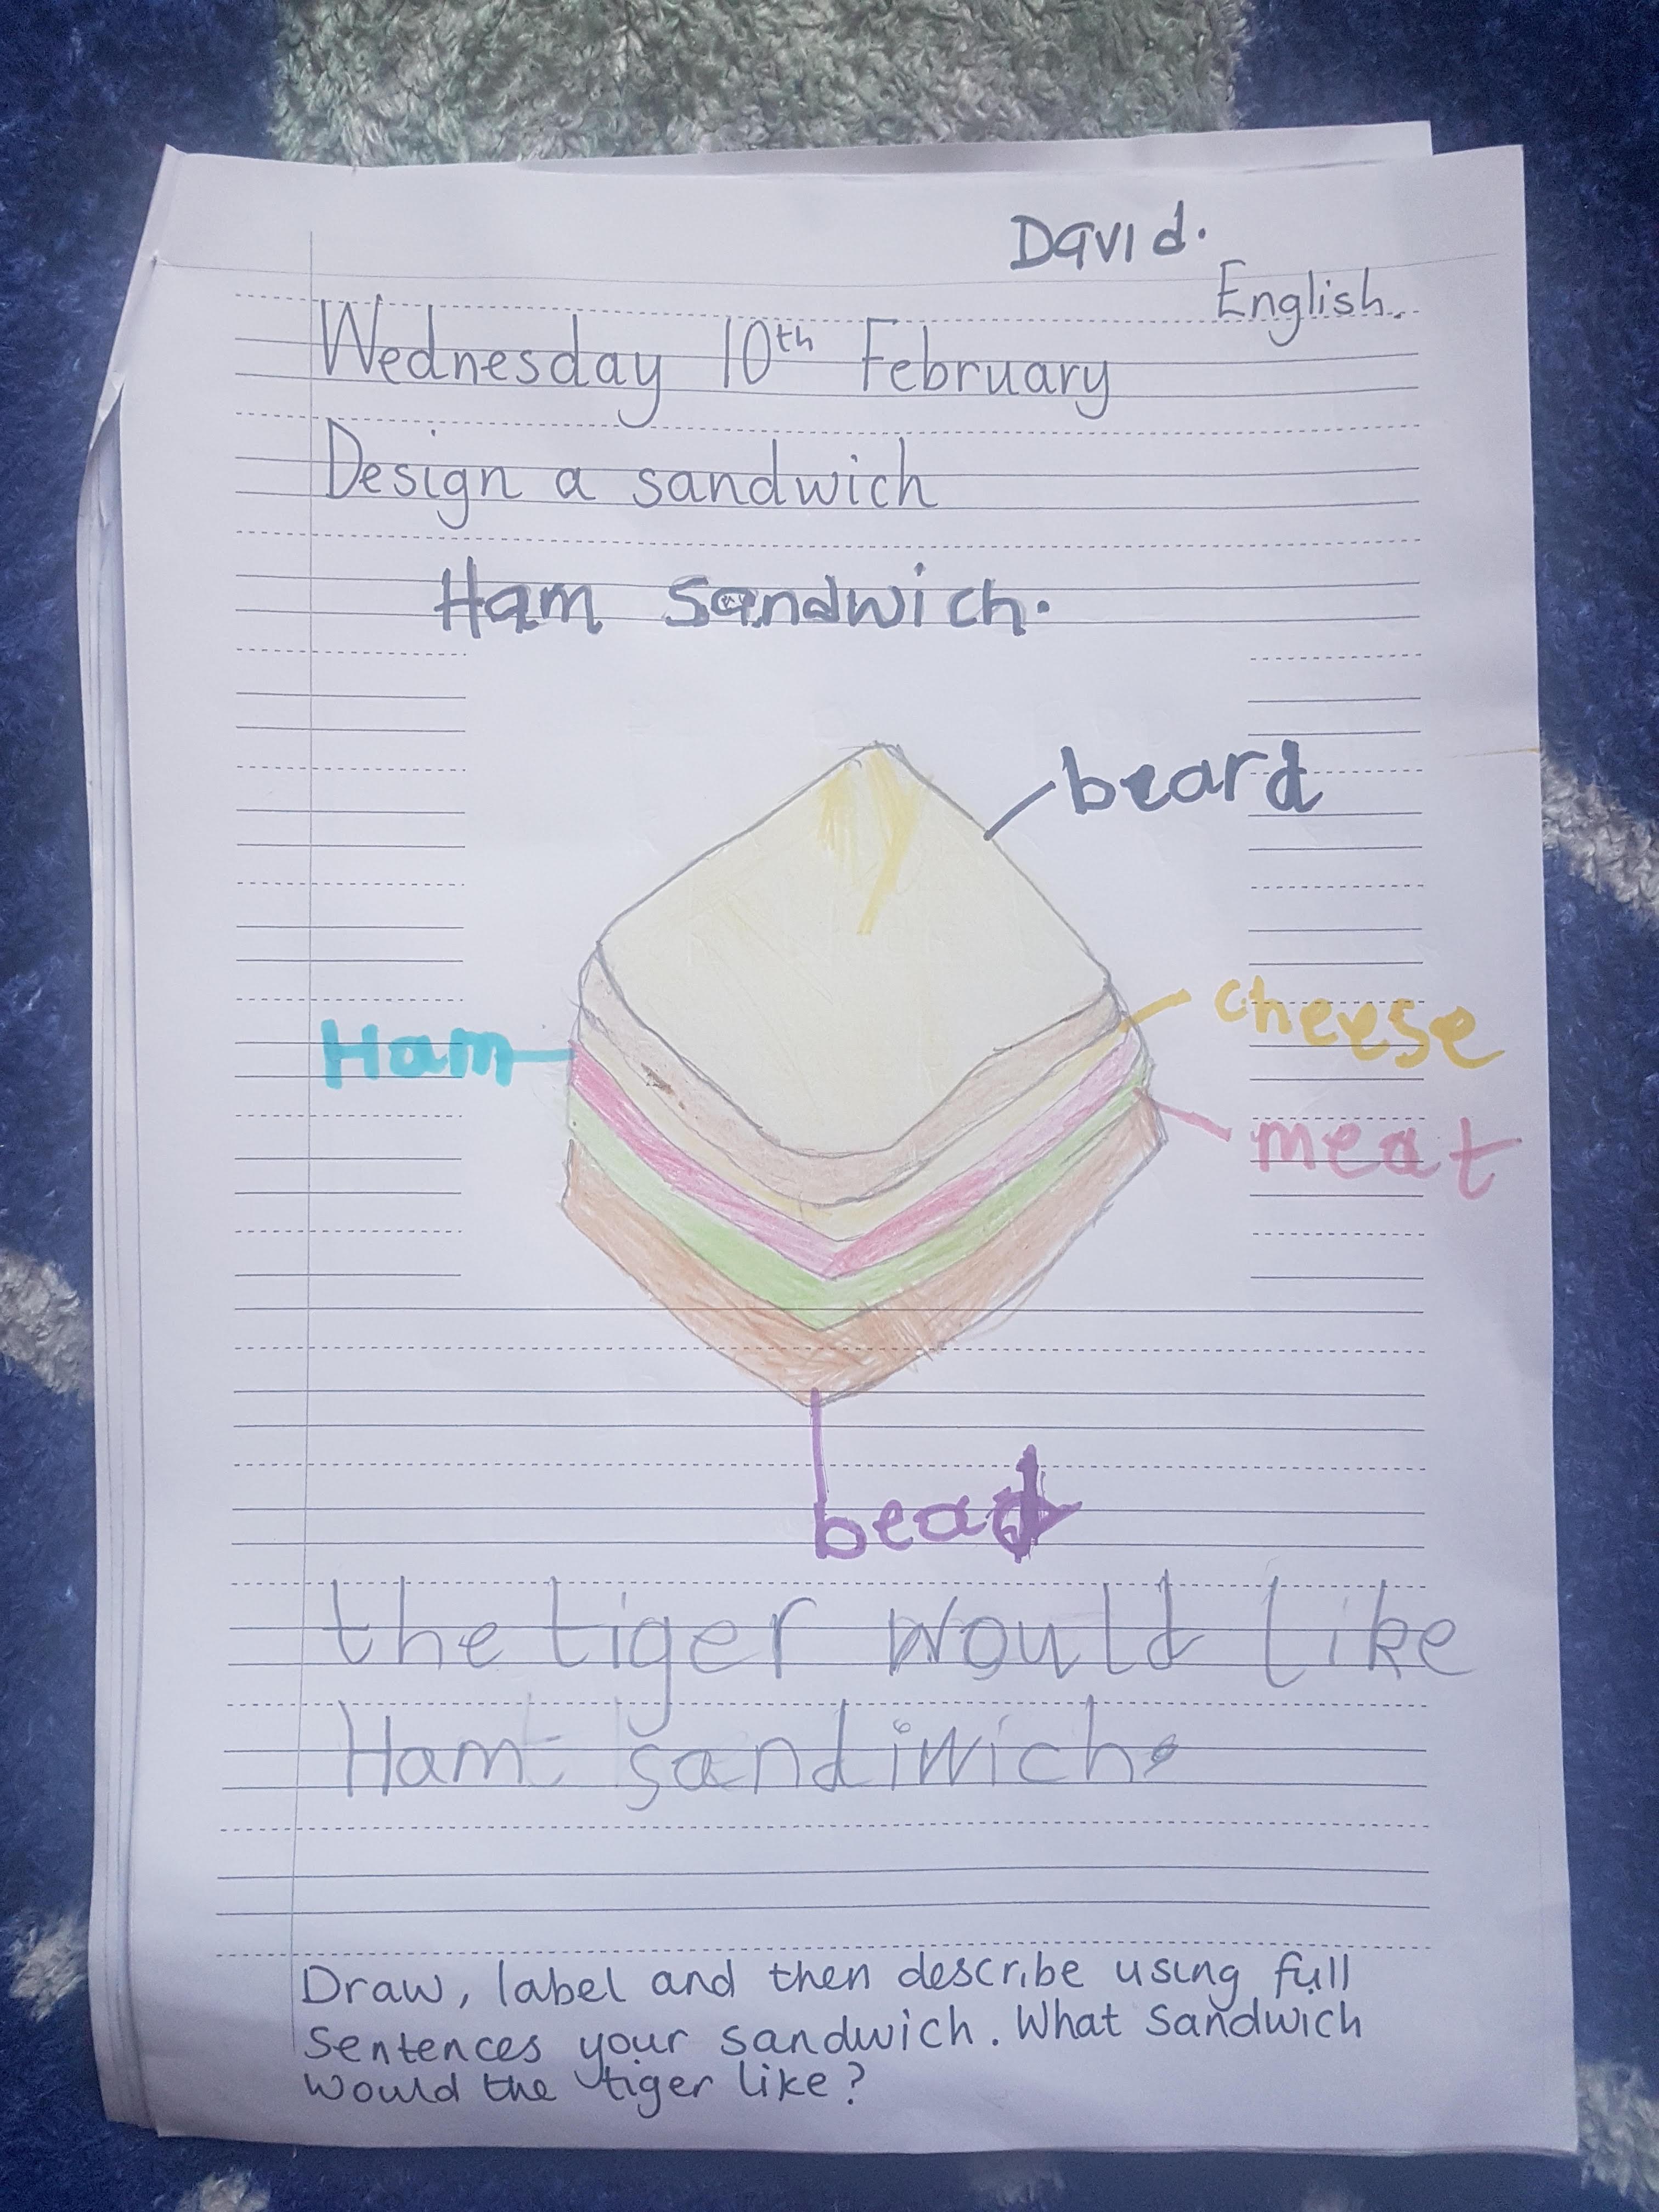 David.
English.
Wednesday 10th February
Design a sandwich
Ham sandwich.
beard
cheese
Ham
meat
bead
the tiger would like
Ham sandiwich.
Draw, label and then describe using full
sentences your sandwich. What sandwich
would the tiger like?